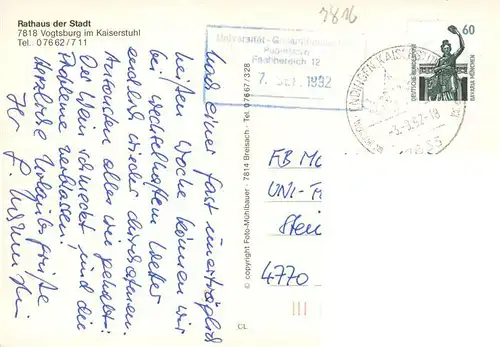 Rathaus der Stadt
7818 Vogtsburg im Kaiserstuhl
Tel. 07662/711
Nach einer fast unerträglich
heißen Woche können wir
bei wechselhaftem Wetter
endlich wieder durchatmen.
Ansonsten alles wie gehabt:
Der Wein schmeckt und die
Probleme verblassen!
Herzliche Urlaubsgrüße
Ihr
© copyright Foto-Mühlbauer - 7814 Breisach - Tel. 07667/328
CL
7816
Universität - Gesamthochschule
Fachbereich 12
7. SEP. 1992
60
DEUTSCHE BUNDESPOST
BAVARIA MÜNCHEN
-3.-9.92-18
FB
UNI-
4770